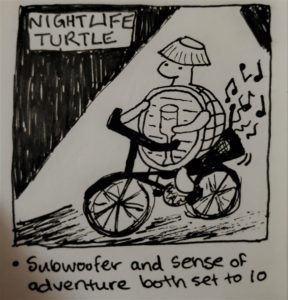 NIGHTLIFE
TURTLE
• Subwoofer and sense of
adventure both set to 10